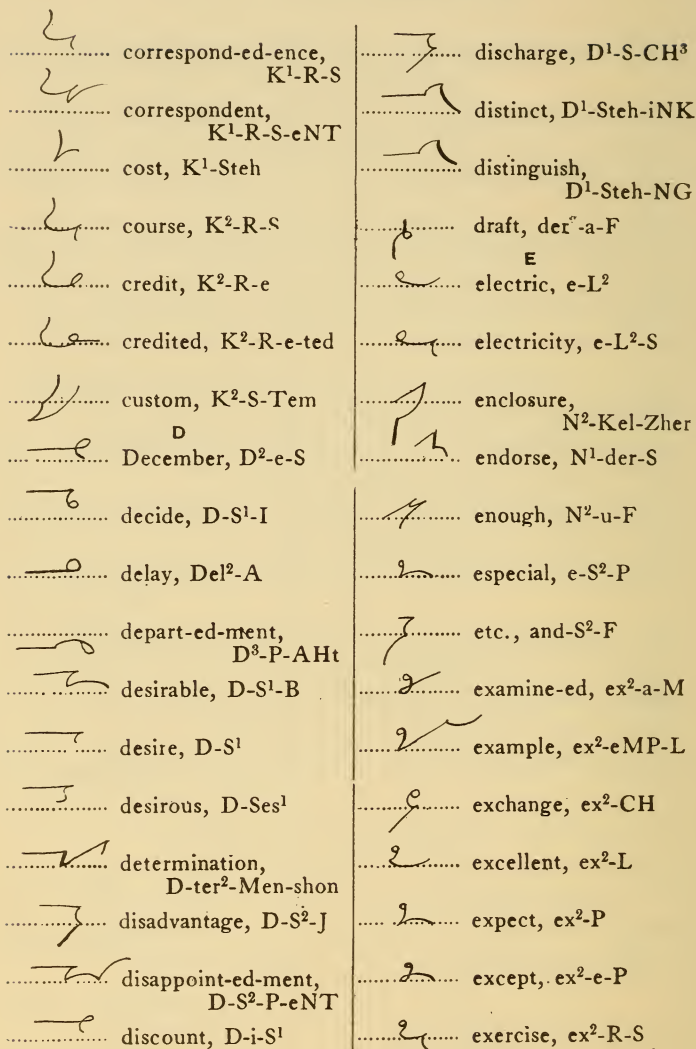 correspond-ed-ence,
K¹-R-S
correspondent,
K¹-R-S-eNT
cost, K¹-Steh
course, K²-R-S
credit, K²-R-e
credited, K²-R-e-ted
custom, K²-S-Tem
D
December, D²-e-S
decide, D-S¹-I
delay, Del²-A
depart-ed-ment,
D³-P-AHt
desirable, D-S¹-B
desire, D-S¹
desirous, D-Ses¹
determination,
D-ter²-Men-shon
disadvantage, D-S²-J
disappoint-ed-ment,
D-S²-P-eNT
discount, D-i-S¹
discharge, D¹-S-CH³
distinct, D¹-Steh-iNK
distinguish,
D¹-Steh-NG
draft, der²-a-F
E
electric, e-L²
electricity, e-L²-S
enclosure,
N²-Kel-Zher
endorse, N¹-der-S
enough, N²-u-F
especial, e-S²-P
etc., and-S²-F
examine-ed, ex²-a-M
example, ex²-eMP-L
exchange, ex²-CH
excellent, ex²-L
expect, ex²-P
except, ex²-e-P
exercise, ex²-R-S